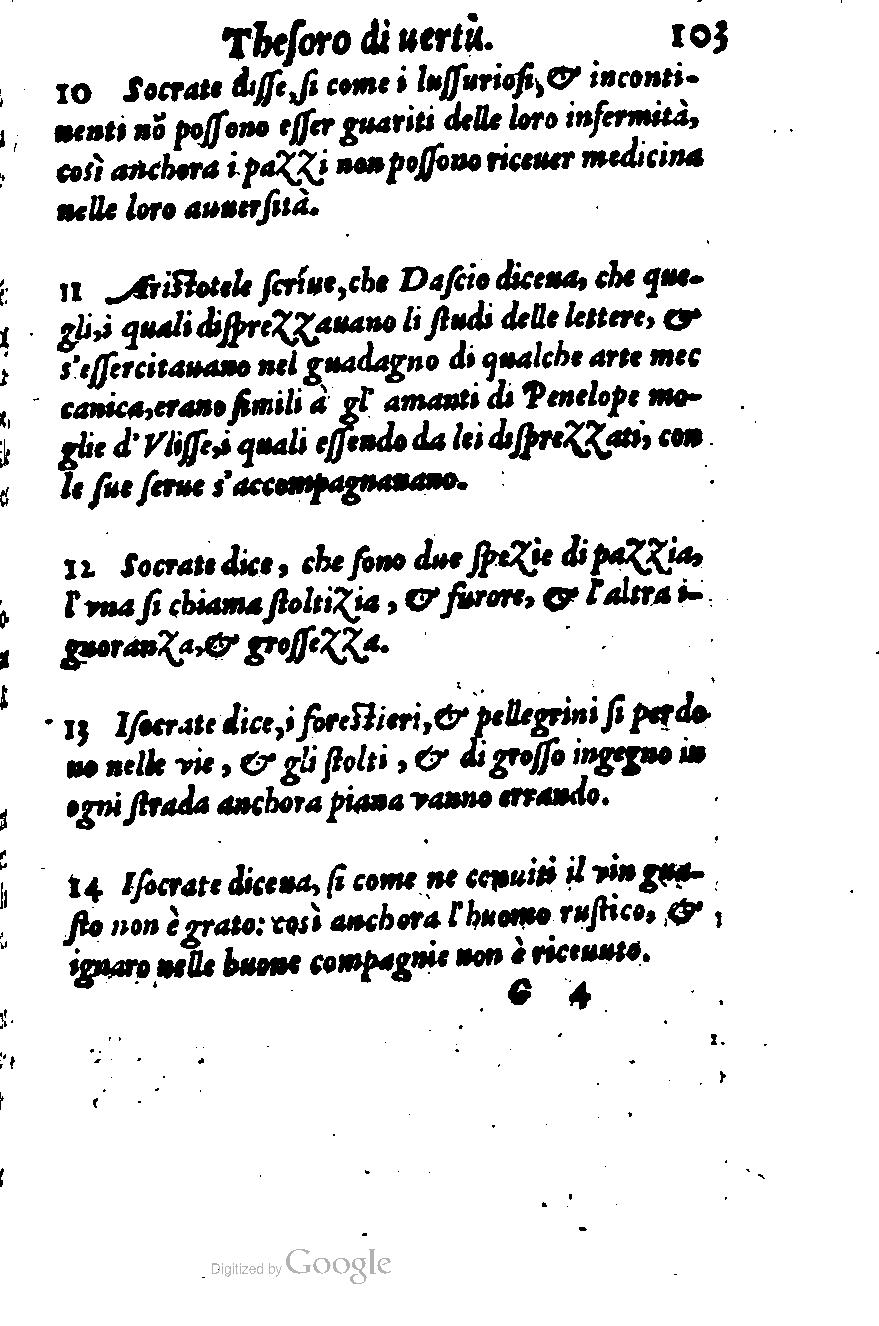 Theſoro di uertù. 103
10 Socrate diſſe, ſi come i luſſurioſi, & inconti-
nenti nõ poſſono eſſer guariti delle loro infermità,
così anchora i pazzi non poſſono riceuer medicina
nelle loro auuerſità.
11 Ariſtotele ſcríue, che Daſcio diceua, che que-
gli, i quali diſprezzauano li ſtudi delle lettere, &
s'eſſercitauano nel guadagno di qualche arte mec
canica, erano ſimili à gl' amanti di Penelope mo-
glie d' Vliſſe, i quali eſſendo da lei diſprezzati, con
le ſue ſerue s'accompagnauano.
12 Socrate dice, che ſono due ſpezie di pazzia,
l' vna ſi chiama ſtoltizia, & furore, & l'altra i-
gnoranza, & groſſezza.
13 Iſocrate dice, i foreſtieri, & pellegrini ſi perdo
no nelle vie, & gli ſtolti, & di groſſo ingegno in
ogni ſtrada anchora piana vanno errando.
14 Iſocrate diceua, ſi come ne conuiti il vin gua-
ſto non è grato: così anchora l'huomo ruſtico, &
ignaro nelle buone compagnie non è riceuuto.
G 4
Digitized by Google